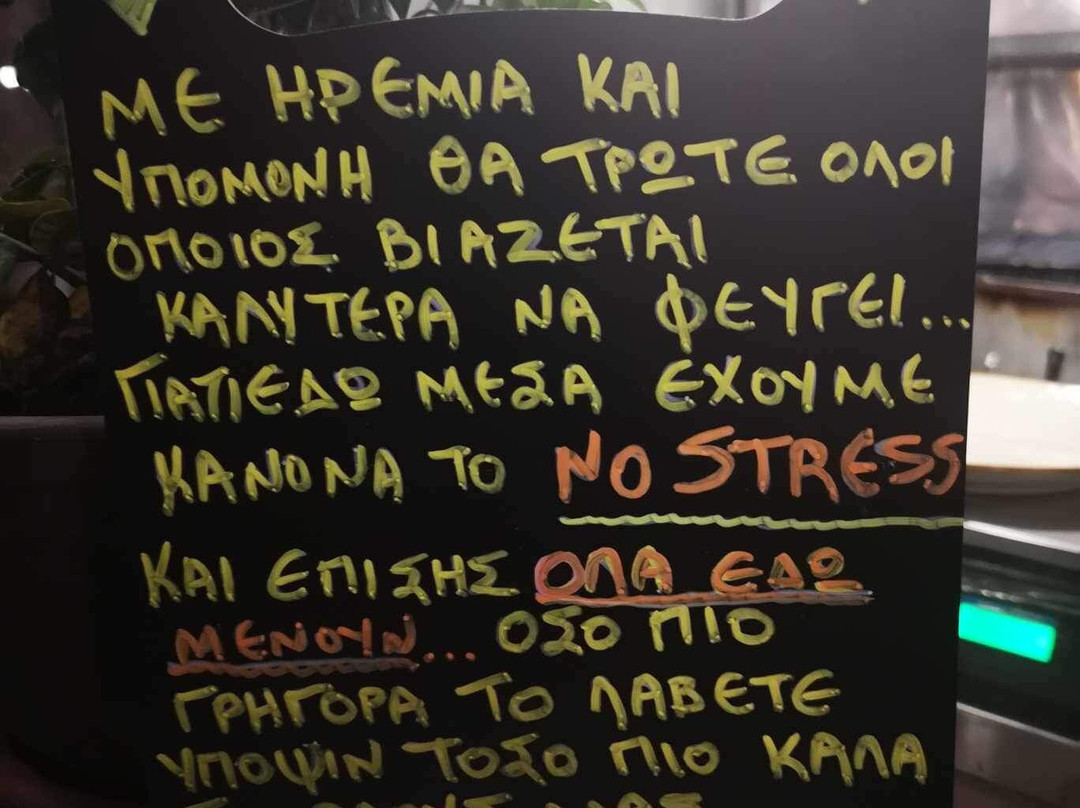 ΜΕ ΗΡΕΜΙΑ ΚΑΙ
ΥΠΟΜΟΝΗ ΘΑ ΤΡΩΤΕ ΟΛΟΙ
ΟΠΟΙΟΣ ΒΙΑΖΕΤΑΙ
ΚΑΛΥΤΕΡΑ ΝΑ ΦΕΥΓΕΙ...
ΓΙΑΤΙ ΕΔΩ ΜΕΣΑ ΕΧΟΥΜΕ
ΚΑΝΟΝΑ ΤΟ NO STRESS
ΚΑΙ ΕΠΙΣΗΣ ΟΛΑ ΕΔΩ
ΜΕΝΟΥΝ... ΟΣΟ ΠΙΟ
ΓΡΗΓΟΡΑ ΤΟ ΛΑΒΕΤΕ
ΥΠΟΨΙΝ ΤΟΣΟ ΠΙΟ ΚΑΛΑ